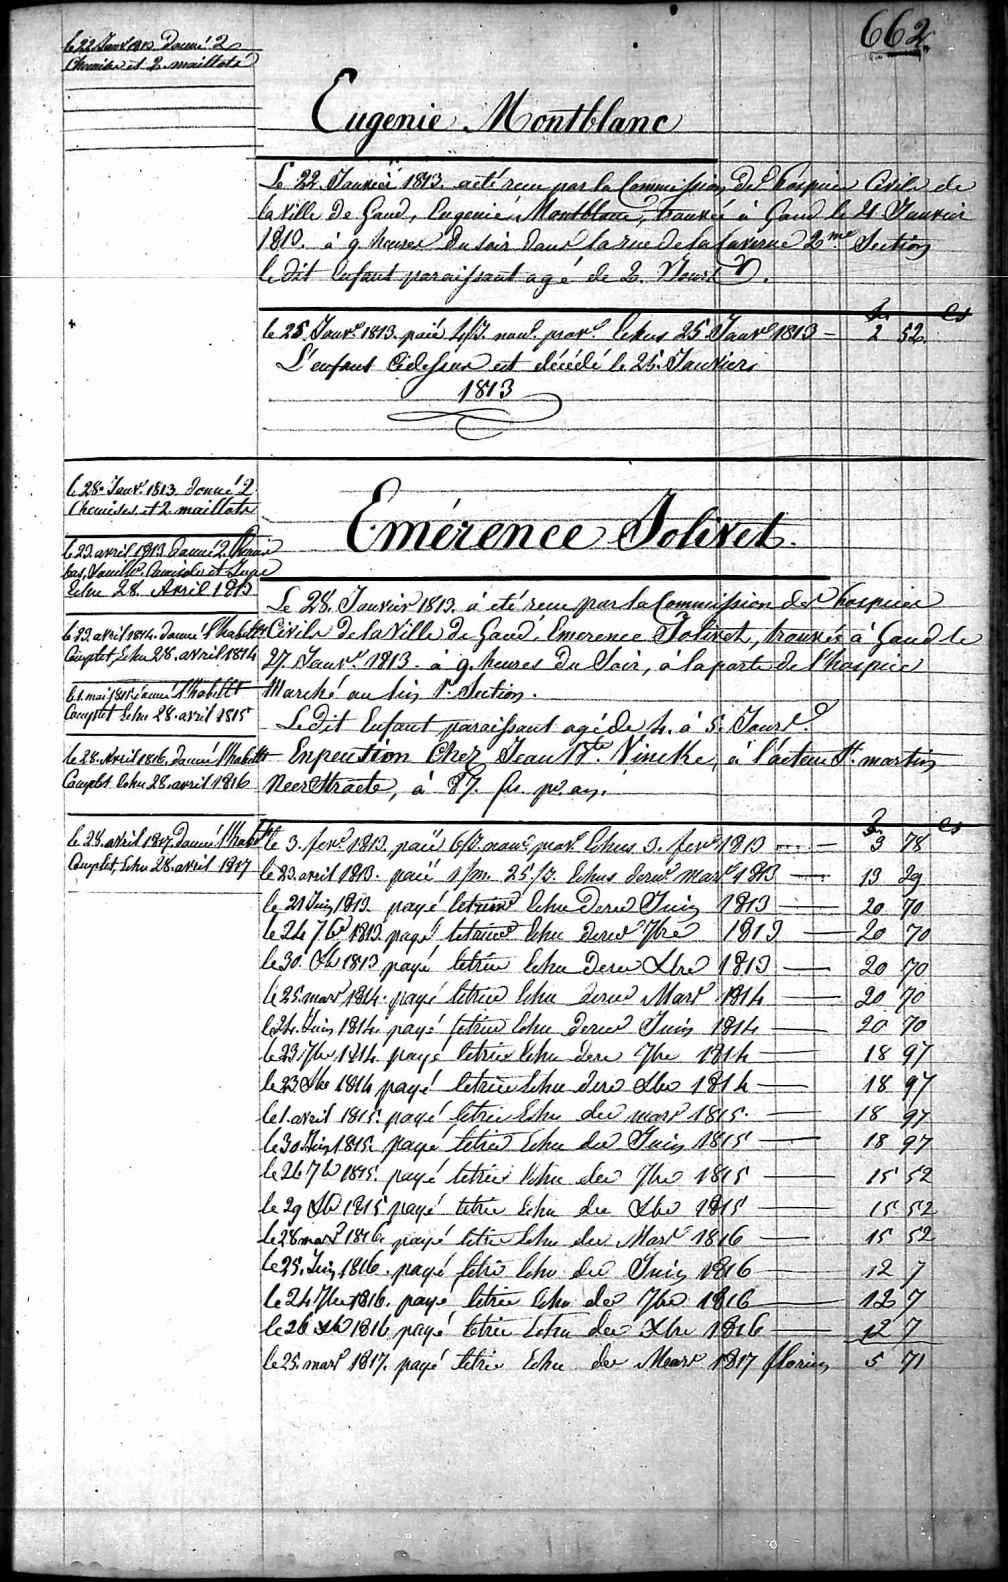 662
le 22 Janv. 1813 Donné 2
Chemises et 2 maillots
Eugenie Montblanc
Le 22 Janvier 1813. a été reçu par la Commission des hospices Civils de
la Ville de Gand, Eugenie Montblanc, trouvée à Gand le 21 Janvier
1813. à 9 heures du soir dans la rue de la Caverne 2me Section
le dit Enfant paraissant agé de 2. Jours.
fs cs
le 25 Janvr 1813. paié Echus 25 Janvr 1813 — 2 52
L'enfant Cidessus est décédé le 25. Janvier
1813
le 28. Janvr. 1813. donné 2
Chemises et 2 maillots
Emérence Jolivet.
le 23 avril 1813 donné 2
bas, Camisole et Jupe
Echu 28 Avril 1813
Le 28. Janvier 1813. a été reçu par la Commission des hospices
le 23 avril 1814. donné l'habillt
Complet, Echu 28. avril 1814
Civils de la Ville de Gand, Emerence Jolivet, trouvée à Gand le
27. Janvr 1813. à 9. heures du Soir, à la porte de l'hospice
le 1. mai 1815 donné l'habillt
Complet Echu 28. avril 1815
Marché au lin 1e Section.
Le dit Enfant paraissant agé de 4. à 5. Jours.
le 28. Avril 1816. donné l'habillt
Complet Echu 28. avril 1816
En pension Chez Jean Bte Vincke, à St. martin
Neerstraete, à 87. fs. pr. an.
fs cs
le 28. avril 1817. donné l'habt
Complet, Echu 28. avril 1817
le 3. fevr 1813. paié Echus 3. fevr 1813 — 3 78
le 23 avril 1813. paié Echus derner mars 1813 — 13 29
le 21 Juin 1813. payé letrime Echu derer Juin 1813 — 20 70
le 24 7bre 1813 payé letrime Echu derer 7bre 1813 — 20 70
le 30. Xbre 1813 payé letrim Echu derer Xbre 1813 — 20 70
le 25 mars 1814. payé letrim Echu derer Mars 1814 — 20 70
le 24. Juin 1814. payé letrim Echu derer Juin 1814 — 20 70
le 23 7bre 1814. payé letrim Echu derer 7bre 1814 — 18 97
le 23 Xbre 1814 payé letrim Echu derer Xbre 1814 — 18 97
le 1. avril 1815. payé letrim Echu der mars 1815. — 18 97
le 30 Juin 1815. payé letrim Echu der Juin 1815 — 18 97
le 26 7bre 1815. payé letrim Echu der 7bre 1815 — 15 52
le 29 Xbre 1815 payé letrim Echu der Xbre 1815 — 15 52
le 28 mars 1816. payé letrim Echu der Mars 1816 — 15 52
le 25. Juin 1816. payé letrim Echu der Juin 1816 — 12 7
le 24 7bre 1816. payé letrim Echu der 7bre 1816 — 12 7
le 26 Xbre 1816 payé letrim Echu der Xbre 1816 — 12 7
le 25. mars 1817. payé letrim Echu der Mars 1817 florins 5 71